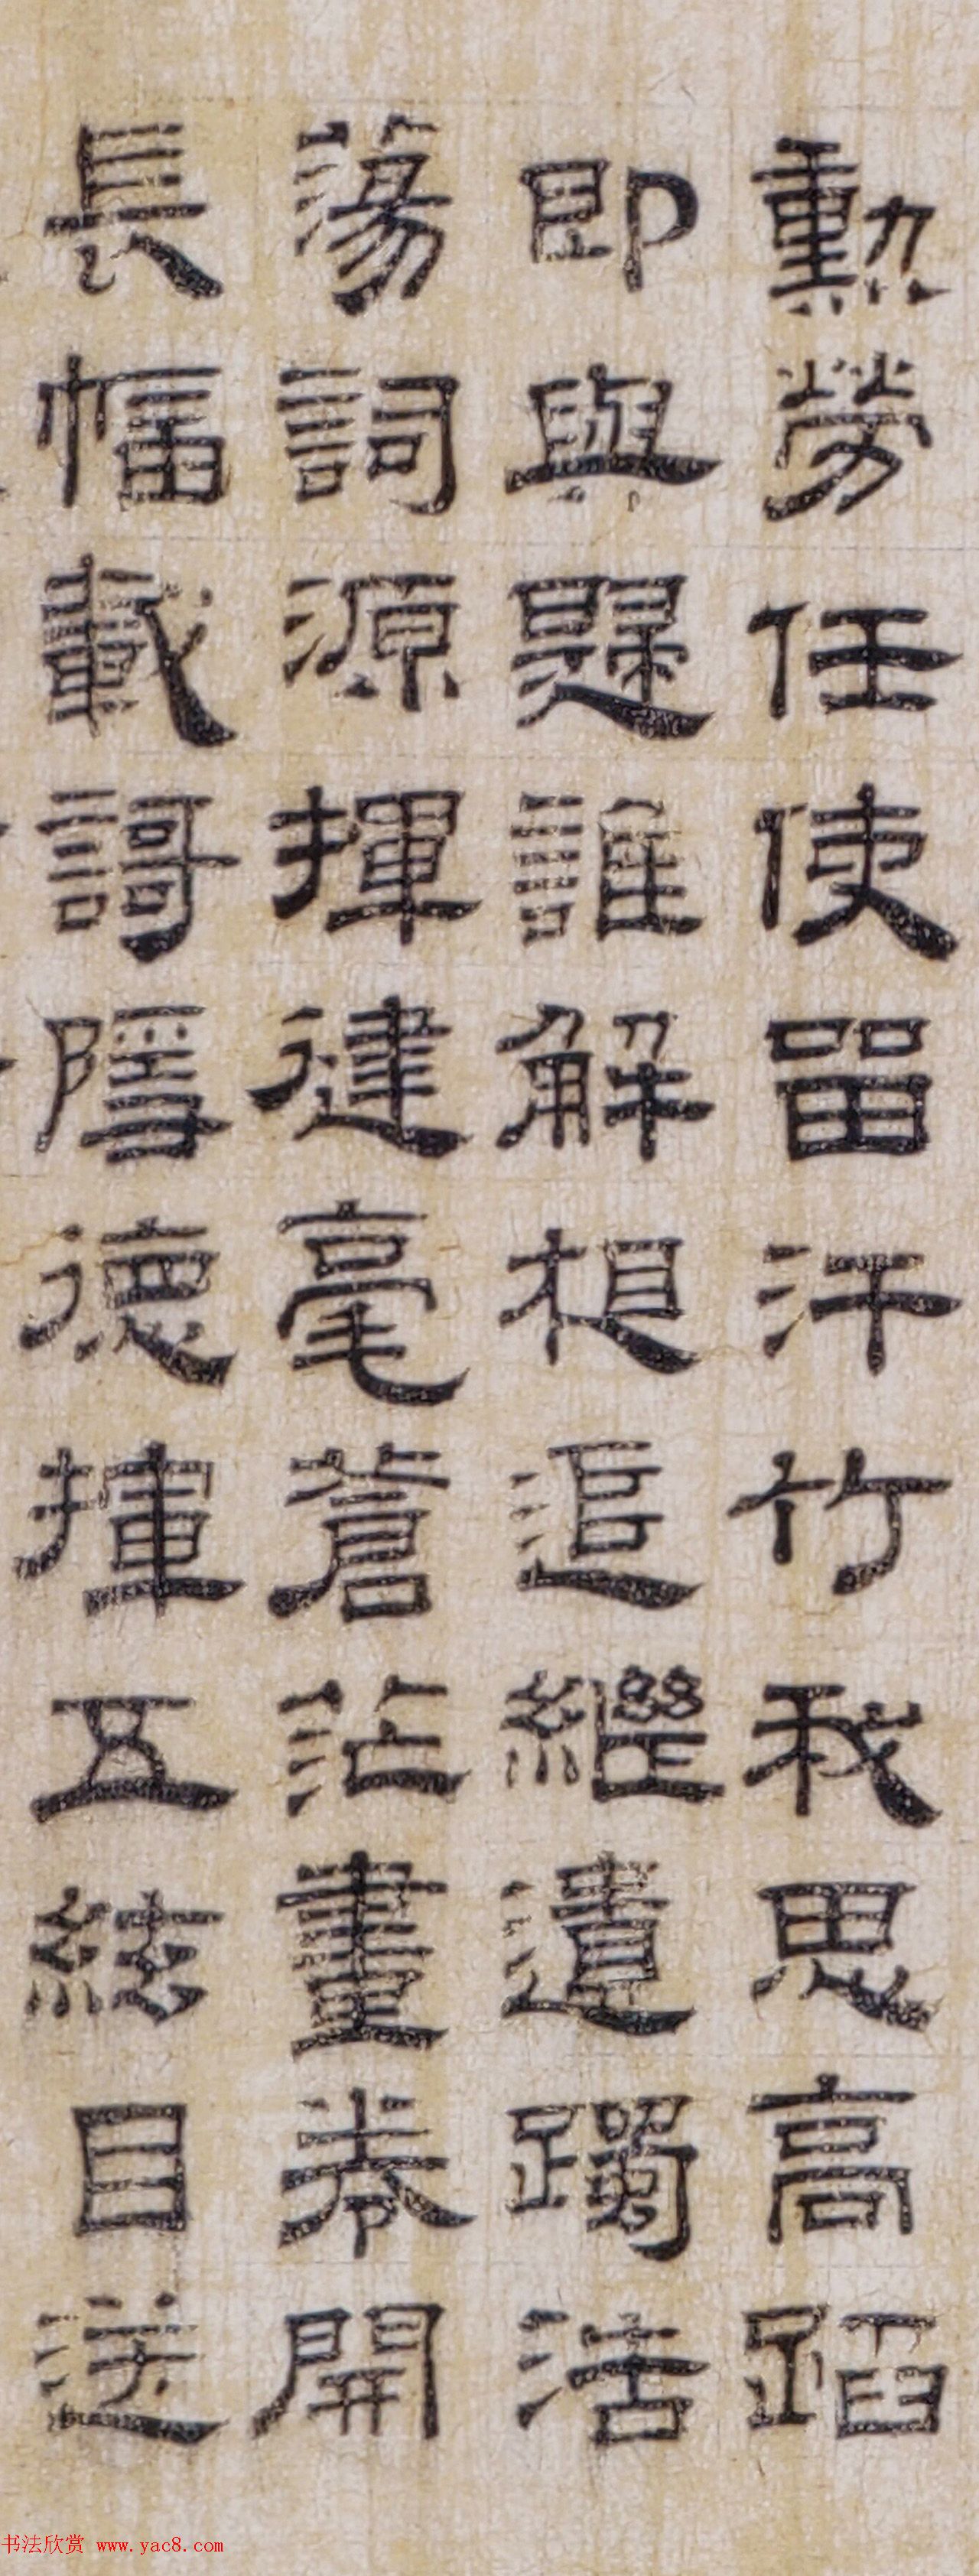 勳勞任使留汗竹我思高蹈
即與題誰解想追繼遺躅活
蕩詞源揮健毫蒼茫畫卷開
長幅載謌隱德揮五絃目送
书法欣赏 www.yac8.com